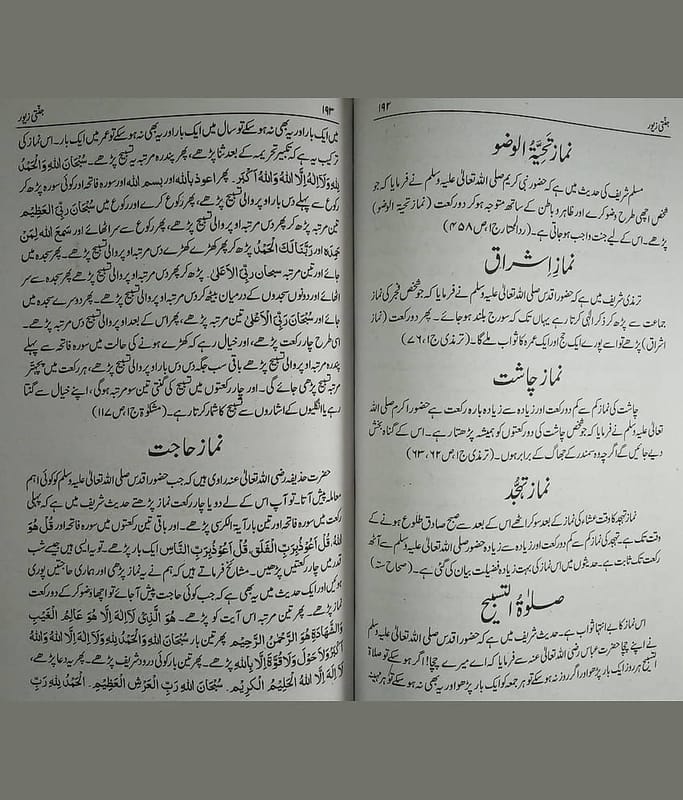 ۱۹۲
جنتی زیور
نماز تحیۃ الوضو
مسلم شریف کی حدیث میں ہے کہ حضور نبی کریم صلی اللہ تعالیٰ علیہ وسلم نے فرمایا کہ جو
شخص اچھی طرح وضو کرے اور ظاہر و باطن کے ساتھ متوجہ ہو کر دو رکعت (نماز تحیۃ الوضو)
پڑھے۔ اس کے لیے جنت واجب ہو جاتی ہے۔ (ردالمحتار ج۱ ص ۴۵۸)
نمازِ اشراق
ترمذی شریف میں ہے کہ حضور اقدس صلی اللہ تعالیٰ علیہ وسلم نے فرمایا کہ جو شخص فجر کی نماز
جماعت سے پڑھ کر ذکر الٰہی کرتا رہے یہاں تک کہ سورج بلند ہو جائے۔ پھر دو رکعت (نماز
اشراق) پڑھے تو اسے پورے ایک حج اور ایک عمرہ کا ثواب ملے گا۔ (ترمذی ج۱، ص ۷۶)
نماز چاشت
چاشت کی نماز کم سے کم دو رکعت اور زیادہ سے زیادہ بارہ رکعت ہے حضور اکرم صلی اللہ
تعالیٰ علیہ وسلم نے فرمایا کہ جو شخص چاشت کی دو رکعتوں کو ہمیشہ پڑھتا رہے۔ اس کے گناہ بخش
دیے جائیں گے اگرچہ وہ سمندر کے جھاگ کے برابر ہوں۔ (ترمذی ج۱ ص ۶۲، ۶۳)
نماز تہجد
نماز تہجد کا وقت عشاء کی نماز کے بعد سو کر اٹھے اس کے بعد سے صبح صادق طلوع ہونے کے
وقت تک ہے۔ تہجد کی نماز کم سے کم دو رکعت اور زیادہ سے زیادہ حضور صلی اللہ تعالیٰ علیہ وسلم سے آٹھ
رکعت تک ثابت ہے۔ حدیثوں میں اس نماز کی بہت زیادہ فضیلت بیان کی گئی ہے۔ (صحاح ستہ)
صلوٰۃ التسبیح
اس نماز کا بے انتہا ثواب ہے۔ حدیث شریف میں ہے کہ حضور اقدس صلی اللہ تعالیٰ علیہ وسلم
نے اپنے چچا حضرت عباس رضی اللہ تعالیٰ عنہ سے فرمایا کہ اے میرے چچا! اگر ہو سکے تو صلاۃ
التسبیح ہر روز ایک بار پڑھو اور اگر روز نہ ہو سکے تو ہر جمعہ کو ایک بار پڑھو اور یہ بھی نہ ہو سکے تو ہر مہینہ
۱۹۳
جنتی زیور
میں ایک بار اور یہ بھی نہ ہو سکے تو سال میں ایک بار اور یہ بھی نہ ہو سکے تو عمر میں ایک بار۔ اس نماز کی
ترکیب یہ ہے کہ تکبیر تحریمہ کے بعد ثنا پڑھے، پھر پندرہ مرتبہ یہ تسبیح پڑھے۔ سُبْحَانَ اللهِ وَالْحَمْدُ
لِلّٰهِ وَلَا اِلٰهَ اِلَّا اللهُ وَاللهُ اَكْبَر۔ پھر اعوذ باللہ اور بسم اللہ اور سورہ فاتحہ اور کوئی سورہ پڑھ کر
رکوع سے پہلے دس بار اوپر والی تسبیح پڑھے، پھر رکوع کرے اور رکوع میں سُبْحَانَ رَبِّيَ الْعَظِيْم
تین مرتبہ پڑھ کر پھر دس مرتبہ اوپر والی تسبیح پڑھے، پھر رکوع سے سر اٹھائے اور سَمِعَ اللهُ لِمَنْ
حَمِدَه اور رَبَّنَا لَكَ الْحَمْدُ پڑھ کر پھر کھڑے کھڑے دس مرتبہ اوپر والی تسبیح پڑھے۔ پھر سجدہ میں
جائے اور تین مرتبہ سبحان ربی الاعلیٰ پڑھ کر پھر دس مرتبہ اوپر والی تسبیح پڑھے پھر سجدہ سے سر
اٹھائے اور دونوں سجدوں کے درمیان بیٹھ کر دس مرتبہ اوپر والی تسبیح پڑھے۔ پھر دوسرے سجدہ میں
جائے اور سُبْحَانَ رَبِّيَ الْاَعْلٰى تین مرتبہ پڑھے، پھر اس کے بعد اوپر والی تسبیح دس مرتبہ پڑھے۔
اسی طرح چار رکعت پڑھے، اور خیال رہے کہ کھڑے ہونے کی حالت میں سورہ فاتحہ سے پہلے
پندرہ مرتبہ اوپر والی تسبیح پڑھے باقی سب جگہ دس دس بار پڑھے، ہر رکعت میں پچہتر
مرتبہ تسبیح پڑھی جائے گی۔ اور چار رکعتوں میں تسبیح کی گنتی تین سو مرتبہ ہوگی، اپنے خیال سے گنتا
رہے یا انگلیوں کے اشاروں سے تسبیح کا شمار کرتا رہے۔ (مشکوٰۃ ج۱، ص ۱۱۷)
نماز حاجت
حضرت حذیفہ رضی اللہ تعالیٰ عنہ راوی ہیں کہ جب حضور اقدس صلی اللہ تعالیٰ علیہ وسلم کو کوئی اہم
معاملہ پیش آتا۔ تو آپ اس کے لے دو یا چار رکعت نماز پڑھتے حدیث شریف میں ہے کہ پہلی
رکعت میں سورہ فاتحہ اور تین بار آیۃ الکرسی پڑھے۔ اور باقی تین رکعتوں میں سورہ فاتحہ اور قُلْ هُوَ
اللهُ، قُلْ اَعُوْذُ بِرَبِّ الْفَلَقِ، قُلْ اَعُوْذُ بِرَبِّ النَّاسِ ایک ایک بار پڑھے۔ تو یہ ایسی ہیں جیسے شب
قدر میں چار رکعتیں پڑھیں۔ مشائخ فرماتے ہیں کہ ہم نے یہ نماز پڑھی اور ہماری حاجتیں پوری
ہوئیں اور ایک حدیث میں یہ بھی ہے کہ جب کوئی حاجت پیش آ جائے تو اچھا وضو کر کے دو رکعت
نماز پڑھے۔ پھر تین مرتبہ اس آیت کو پڑھے۔ هُوَ اللهُ الَّذِيْ لَا اِلٰهَ اِلَّا هُوَ عَالِمُ الْغَيْبِ
وَالشَّهَادَةِ هُوَ الرَّحْمٰنُ الرَّحِيْمِ پھر تین بار سُبْحَانَ اللهِ وَالْحَمْدُ لِلّٰهِ وَلَا اِلٰهَ اِلَّا اللهُ وَاللهُ
اَكْبَرُ وَلَا حَوْلَ وَلَا قُوَّةَ اِلَّا بِاللهِ پڑھے۔ پھر تین بار کوئی درود شریف پڑھے۔ پھر یہ دعا پڑھے،
لَا اِلٰهَ اِلَّا اللهُ الْحَلِيْمُ الْكَرِيْمِ۔ سُبْحَانَ اللهِ رَبِّ الْعَرْشِ الْعَظِيْمِ۔ اَلْحَمْدُ لِلّٰهِ رَبِّ